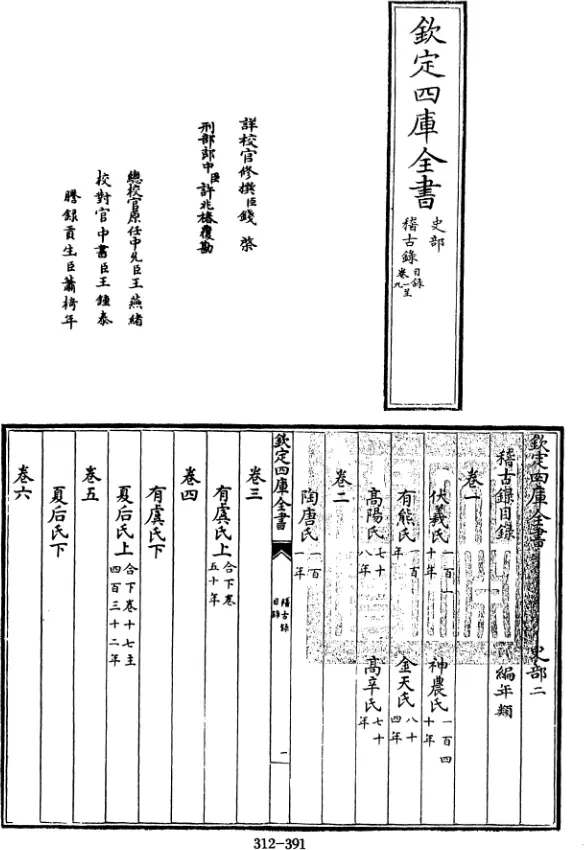 欽定四庫全書
史部
稽古錄
目錄
卷一至
九
詳校官修撰臣錢棨
刑部郎中臣許兆椿覆勘
總校官原任中允臣王燕緒
校對官中書臣王鍾泰
謄錄貢生臣蕭椅年
欽定四庫全書 史部二
稽古錄目錄 編年類
卷一
伏羲氏一百一十年 神農氏一百四十年
有熊氏一百年 金天氏八十四年
高陽氏七十八年 高辛氏七十年
卷二
陶唐氏一百一年
欽定四庫全書
稽古錄
目錄
一
卷三
有虞氏上合下卷五十年
卷四
有虞氏下
夏后氏上合下卷十七主四百三十二年
卷五
夏后氏下
卷六
312-391